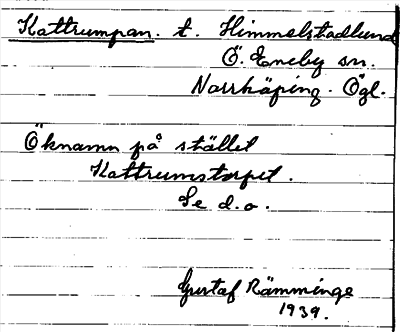 Kattrumpan. t. Himmelstadlund
Ö. Eneby sn.
Norrköping. Ögl.
Öknamn på stället
Kattrumstorpet.
Se d.o.
Gustaf Rämminge
1939.